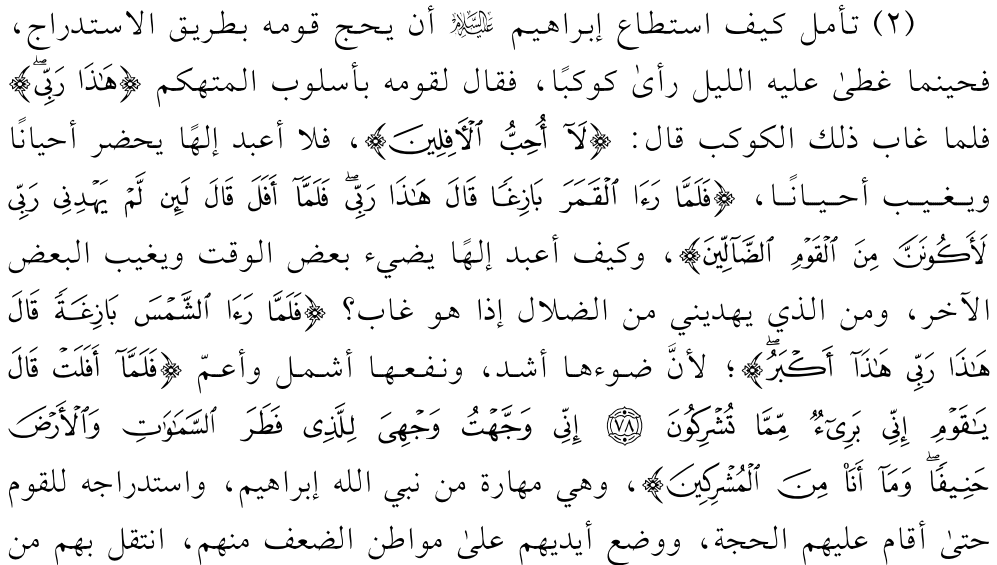 (٢) تأمل كيف استطاع إبراهيم عليه السلام أن يحج قومه بطريق الاستدراج،
فحينما غطىٰ عليه الليل رأىٰ كوكبًا، فقال لقومه بأسلوب المتهكم ﴿هَٰذَا رَبِّيۖ﴾
فلما غاب ذلك الكوكب قال: ﴿لَآ أُحِبُّ ٱلۡأٓفِلِينَ﴾، فلا أعبد إلهًا يحضر أحيانًا
ويـغـيـب أحـيـانًـا، ﴿فَلَمَّا رَءَا ٱلۡقَمَرَ بَازِغٗا قَالَ هَٰذَا رَبِّيۖ فَلَمَّآ أَفَلَ قَالَ لَئِن لَّمۡ يَهۡدِنِي رَبِّي
لَأَكُونَنَّ مِنَ ٱلۡقَوۡمِ ٱلضَّآلِّينَ﴾، وكيف أعبد إلهًا يضيء بعض الوقت ويغيب البعض
الآخر، ومن الذي يهديني من الضلال إذا هو غاب؟ ﴿فَلَمَّا رَءَا ٱلشَّمۡسَ بَازِغَةٗ قَالَ
هَٰذَا رَبِّي هَٰذَآ أَكۡبَرُۖ﴾؛ لأنَّ ضـوءهـا أشـد، ونـفـعـهـا أشـمـل وأعـمّ ﴿فَلَمَّآ أَفَلَتۡ قَالَ
يَٰقَوۡمِ إِنِّي بَرِيٓءٞ مِّمَّا تُشۡرِكُونَ ٧٨ إِنِّي وَجَّهۡتُ وَجۡهِيَ لِلَّذِي فَطَرَ ٱلسَّمَٰوَٰتِ وَٱلۡأَرۡضَ
حَنِيفٗاۖ وَمَآ أَنَا۠ مِنَ ٱلۡمُشۡرِكِينَ﴾، وهي مهارة من نبي الله إبراهيم، واستدراجه للقوم
حتىٰ أقام عليهم الحجة، ووضع أيديهم علىٰ مواطن الضعف منهم، انتقل بهم من